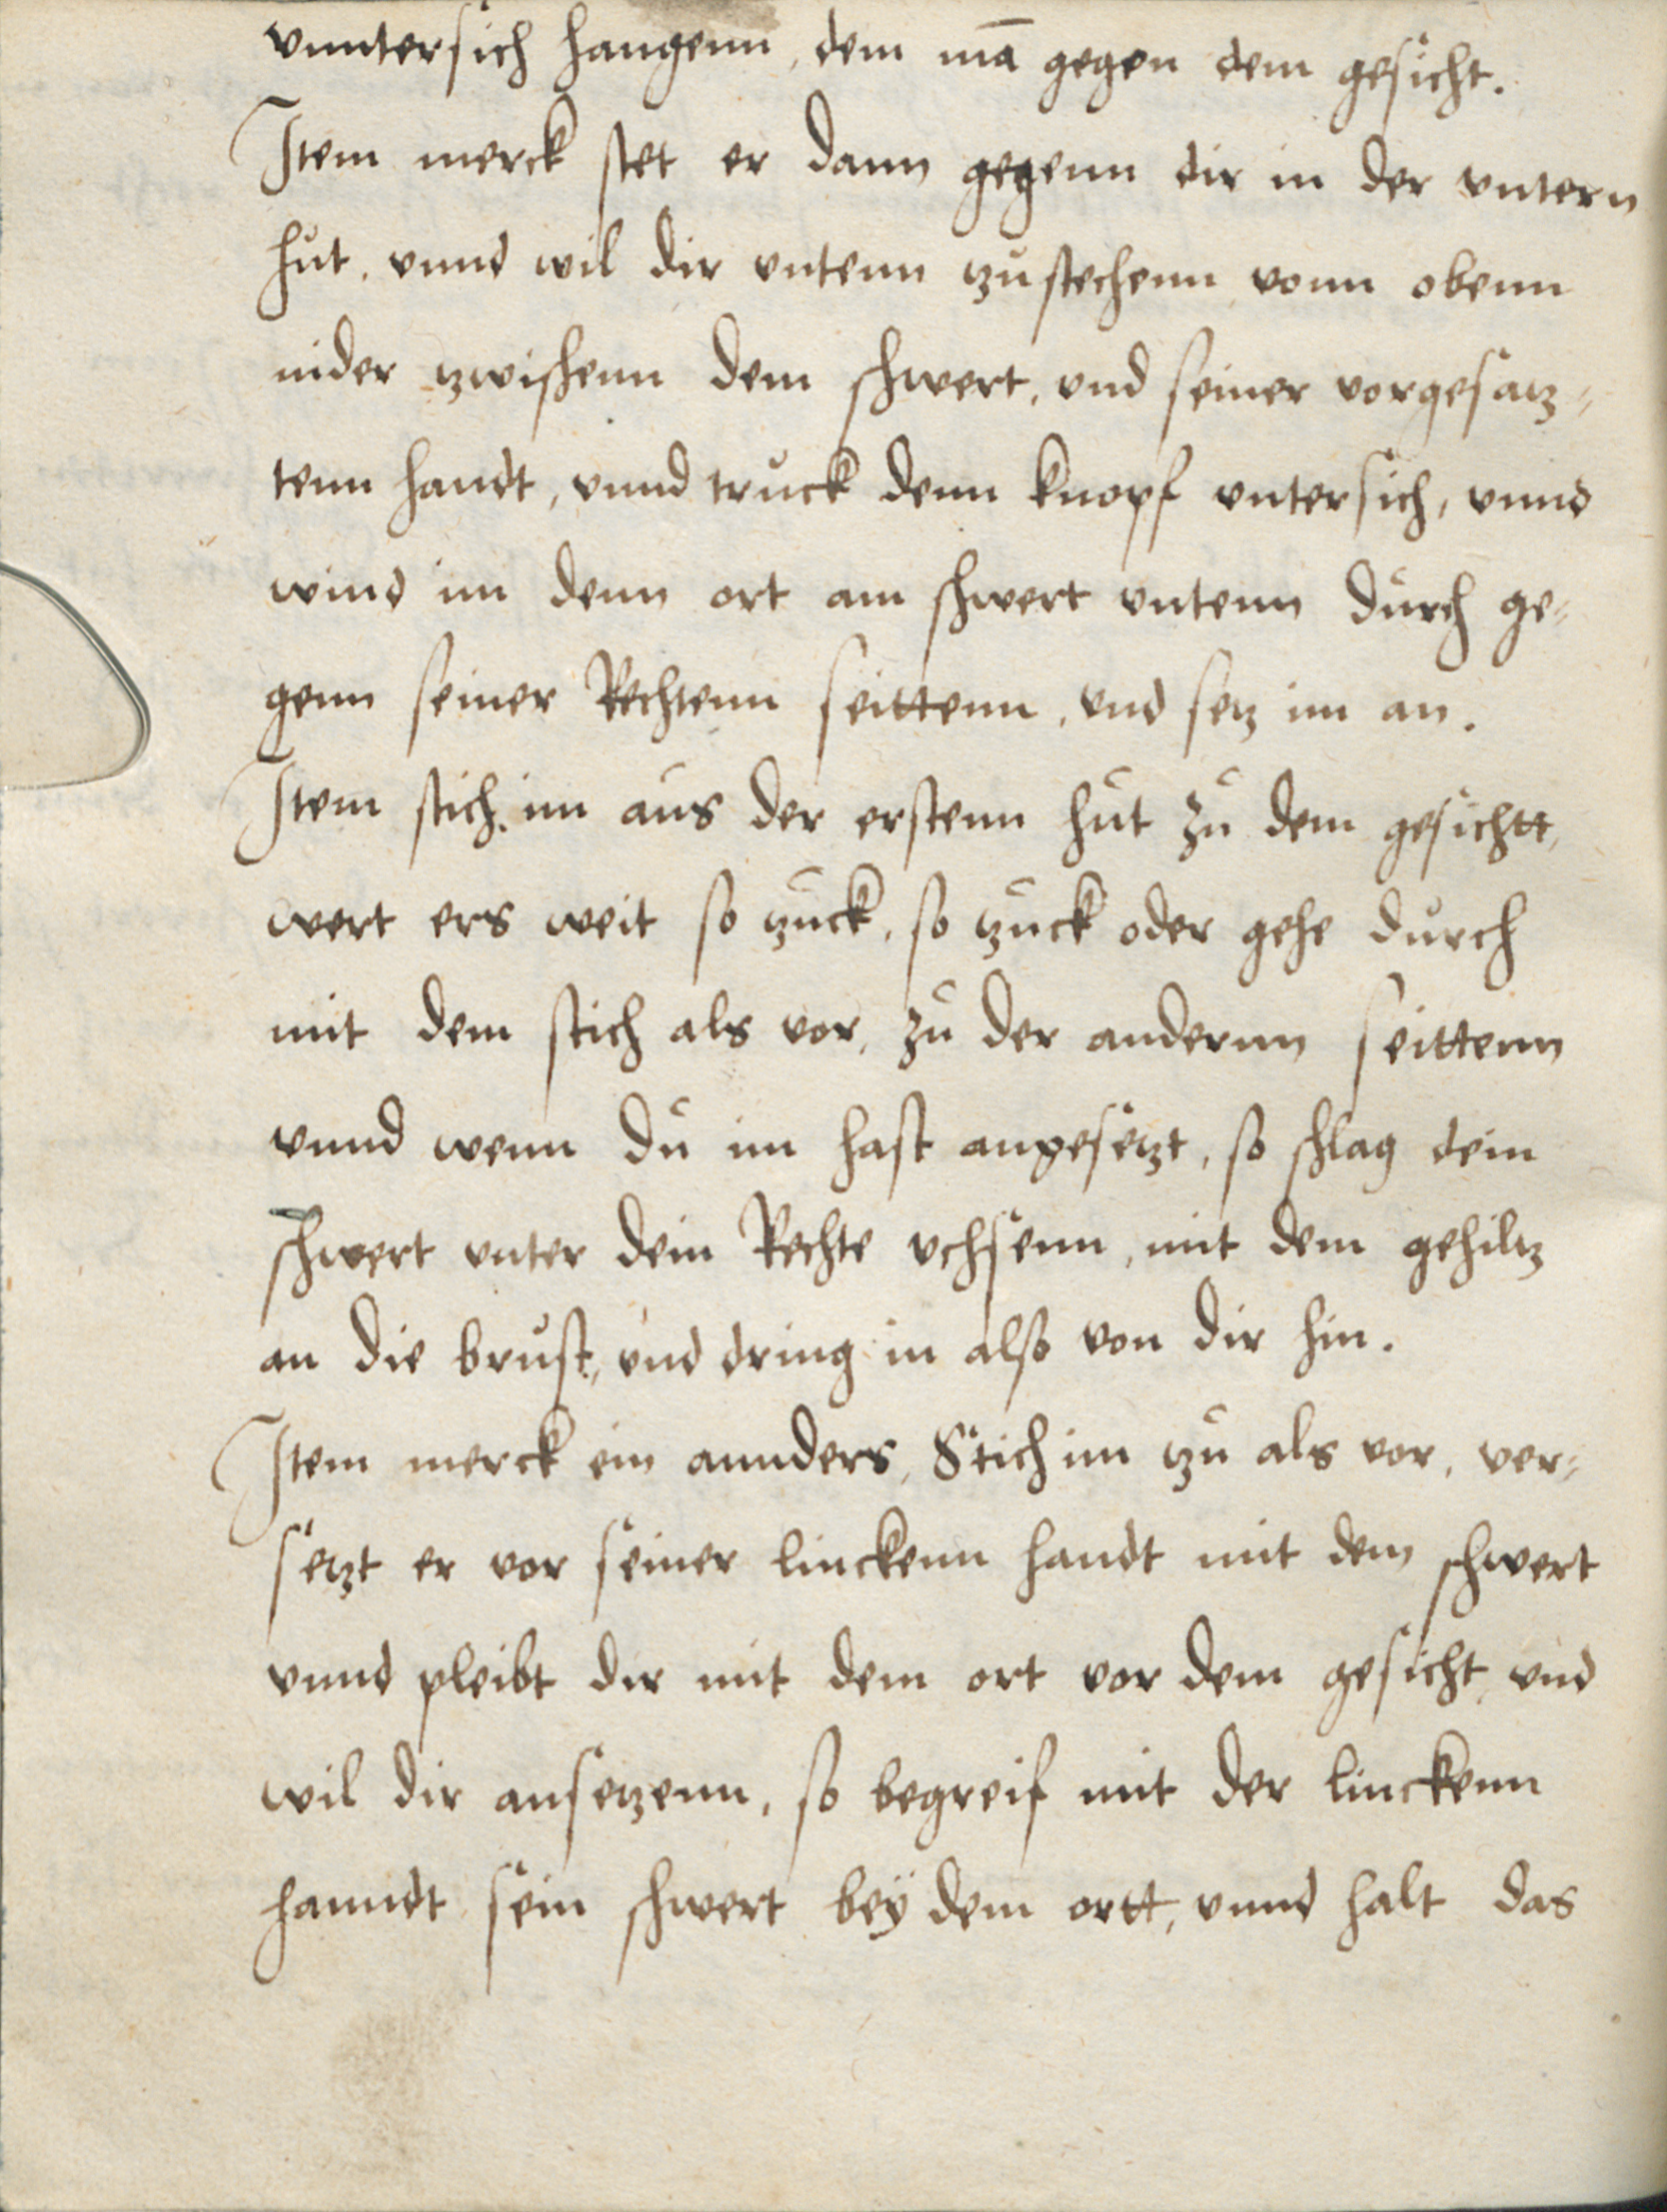 vnntersich hangenn, dem mā gegen dem gesicht.
Item merck stet er dann gegenn dir in der vntern
hut, vnnd wil dir vntenn tzu stechenn vonn obenn
nider tzwischenn dem schwert, vnd seiner vorgesatz⸗
tenn handt, vnnd truck denn knopf vntersich, vnnd
wind im denn ort am schwert vntenn durch ge⸗
genn seiner Rechtenn seittenn, vnd setz im an.
Item stich im aus der erstenn hut zu dem gesichtt,
wert ers weit so tzuck, so tzuck oder gehe durch
mit dem stich als vor, zu der andernn seittenn
vnnd wenn du im hast angesetzt, so schlag dein
schwert vnter dein Rechte vchsenn, mit dem gehiltz
an die brust, vnd dring in also von dir hin.
Item merck ein annders, Stich im tzu als vor, ver⸗
setzt er vor seiner linckenn handt mit dem schwert
vnnd pleibt dir mit dem ort vor dem gesicht, vnd
wil dir ansetzenn, so begreif mit der linckenn
hanndt sein schwert beÿ dem ortt, vnnd halt das